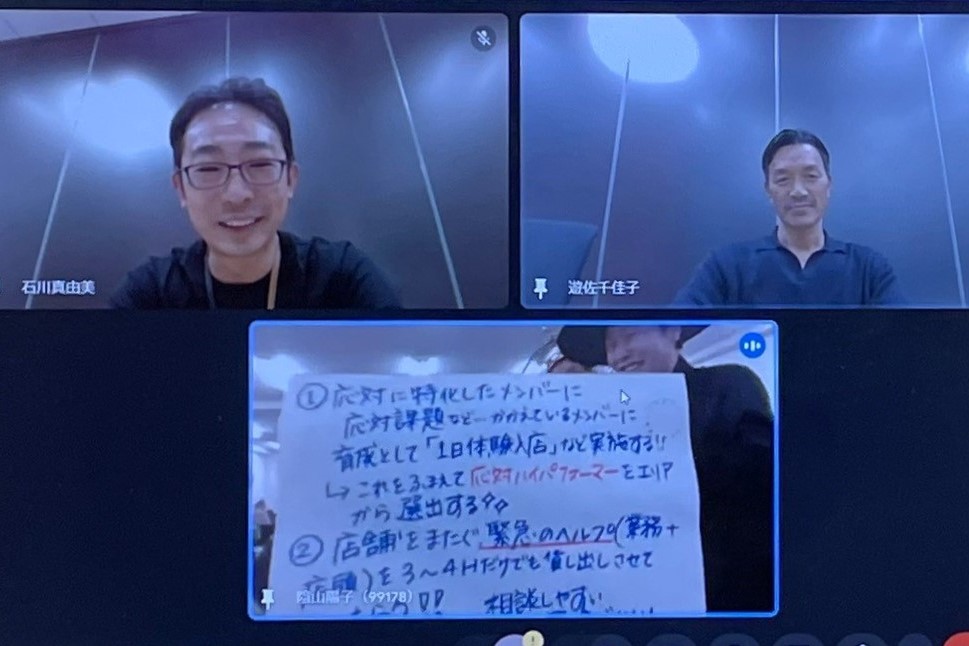 石川真由美
遊佐千佳子
① 応対に特化したメンバーに
応対課題など…かかえているメンバーに
育成として「1日体験入店」など実施する!!
↳ これをふまえて応対ハイパフォーマーをエリア
から選出する
② 店舗をまたぐ緊急のヘルプ(業務+
店頭)を3〜4Hだけでも貸し出しさせて
相談しやすい
陰山陽子(99178)